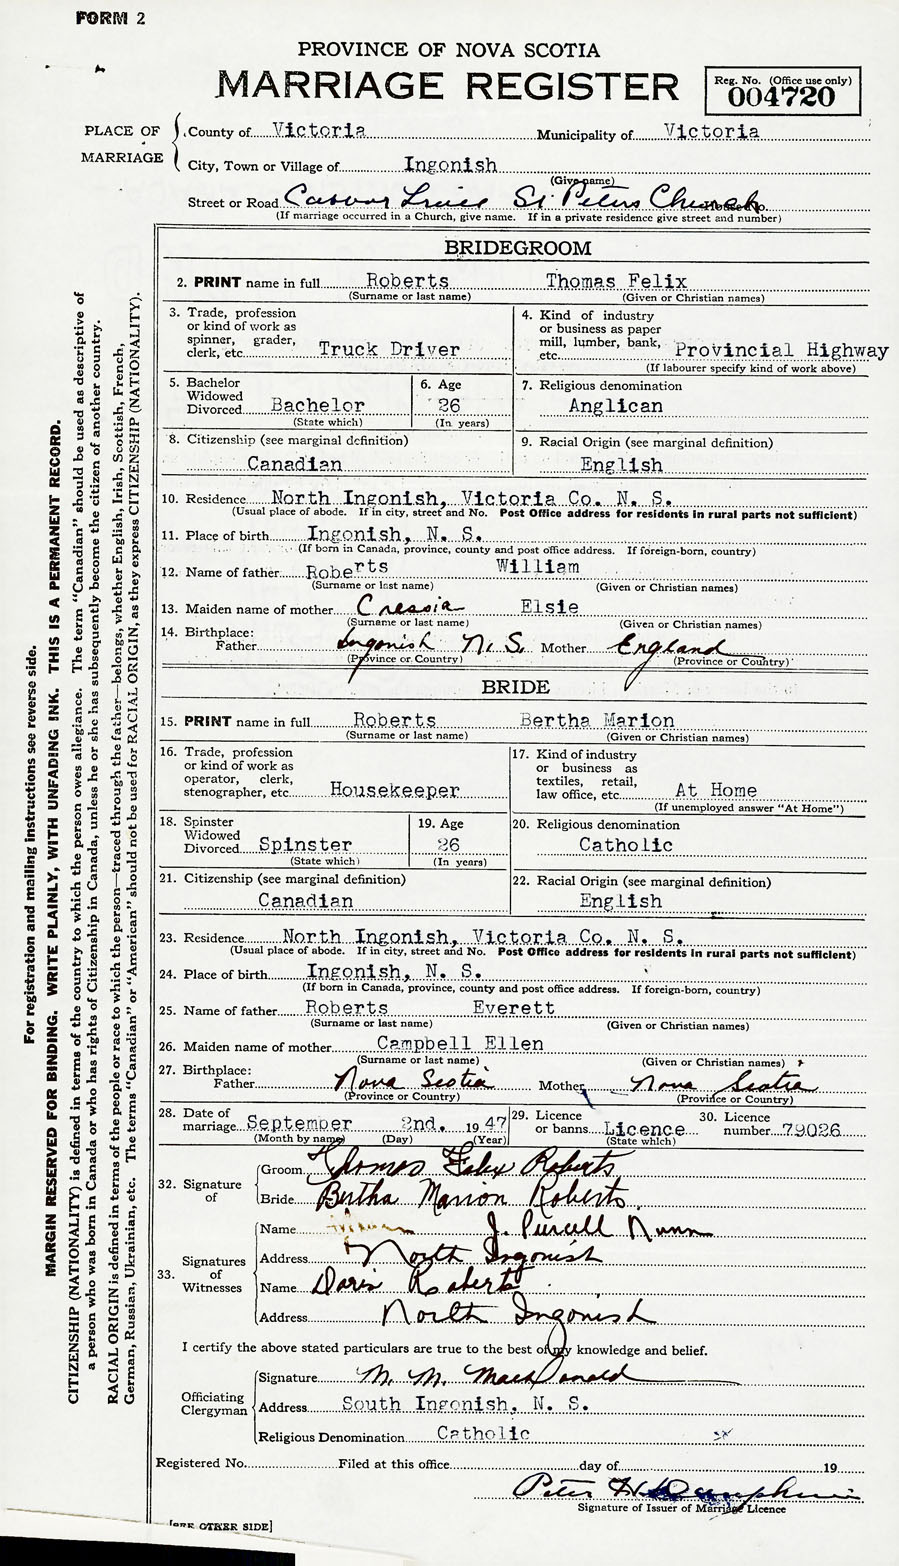 FORM 2
PROVINCE OF NOVA SCOTIA
MARRIAGE REGISTER
Reg. No. (Office use only)
004720
PLACE OF MARRIAGE
County of Victoria Municipality of Victoria
City, Town or Village of Ingonish
(Give name)
Street or Road St Peters Church
(If marriage occurred in a Church, give name. If in a private residence give street and number)
BRIDEGROOM
2. PRINT name in full Roberts Thomas Felix
(Surname or last name) (Given or Christian names)
3. Trade, profession or kind of work as spinner, grader, clerk, etc. Truck Driver
4. Kind of industry or business as paper mill, lumber, bank, etc. Provincial Highway
(If labourer specify kind of work above)
5. Bachelor Widowed Divorced Bachelor
(State which)
6. Age 26
(In years)
7. Religious denomination
Anglican
8. Citizenship (see marginal definition)
Canadian
9. Racial Origin (see marginal definition)
English
10. Residence North Ingonish, Victoria Co. N. S.
(Usual place of abode. If in city, street and No. Post Office address for residents in rural parts not sufficient)
11. Place of birth Ingonish, N. S.
(If born in Canada, province, county and post office address. If foreign-born, country)
12. Name of father Roberts William
(Surname or last name) (Given or Christian names)
13. Maiden name of mother Elsie
(Surname or last name) (Given or Christian names)
14. Birthplace:
Father Ingonish N.S. Mother England
(Province or Country) (Province or Country)
BRIDE
15. PRINT name in full Roberts Bertha Marion
(Surname or last name) (Given or Christian names)
16. Trade, profession or kind of work as operator, clerk, stenographer, etc. Housekeeper
17. Kind of industry or business as textiles, retail, law office, etc. At Home
(If unemployed answer "At Home")
18. Spinster Widowed Divorced Spinster
(State which)
19. Age 26
(In years)
20. Religious denomination
Catholic
21. Citizenship (see marginal definition)
Canadian
22. Racial Origin (see marginal definition)
English
23. Residence North Ingonish, Victoria Co. N. S.
(Usual place of abode. If in city, street and No. Post Office address for residents in rural parts not sufficient)
24. Place of birth Ingonish, N. S.
(If born in Canada, province, county and post office address. If foreign-born, country)
25. Name of father Roberts Everett
(Surname or last name) (Given or Christian names)
26. Maiden name of mother Campbell Ellen
(Surname or last name) (Given or Christian names)
27. Birthplace:
Father Nova Scotia Mother Nova Scotia
(Province or Country) (Province or Country)
28. Date of marriage September 2nd. 1947
(Month by name) (Day) (Year)
29. Licence or banns Licence
(State which)
30. Licence number 79026
32. Signature of
Groom Thomas Felix Roberts
Bride Bertha Marion Roberts
33. Signatures of Witnesses
Name J. Purcell Nunn
Address North Ingonish
Name Doris Roberts
Address North Ingonish
I certify the above stated particulars are true to the best of my knowledge and belief.
Officiating Clergyman
Signature M. M. MacDonald
Address South Ingonish, N. S.
Religious Denomination Catholic
Registered No. Filed at this office day of 19
Peter H.
Signature of Issuer of Marriage Licence
[SEE OTHER SIDE]
For registration and mailing instructions see reverse side.
MARGIN RESERVED FOR BINDING. WRITE PLAINLY, WITH UNFADING INK. THIS IS A PERMANENT RECORD.
CITIZENSHIP (NATIONALITY) is defined in terms of the country to which the person owes allegiance. The term "Canadian" should be used as descriptive of
a person who was born in Canada or who has rights of Citizenship in Canada, unless he or she has subsequently become the citizen of another country.
RACIAL ORIGIN is defined in terms of the people or race to which the person—traced through the father—belongs, whether English, Irish, Scottish, French,
German, Russian, Ukrainian, etc. The terms "Canadian" or "American" should not be used for RACIAL ORIGIN, as they express CITIZENSHIP (NATIONALITY).